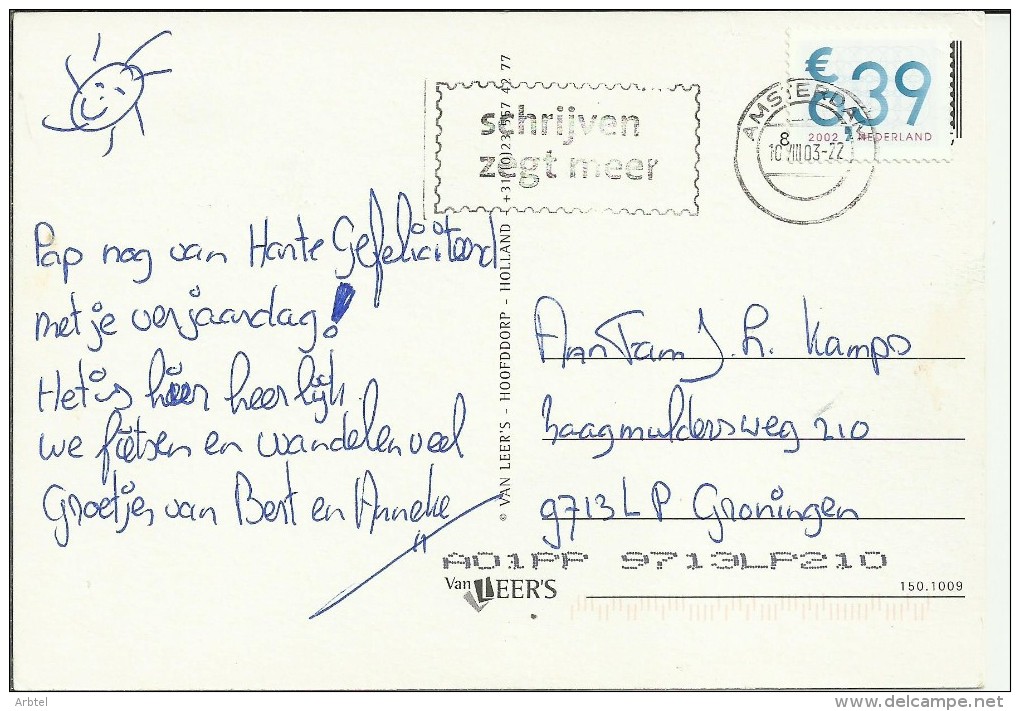 € 0,39
2002 NEDERLAND
AMSTERDAM
8
10 VIII 03-22
schrijven
zegt meer
Pap nog van Harte Gefeliciteerd
met je verjaardag!
Het is hier heerlijk.
we fietsen en wandelen veel
Groetjes van Bert en Anneke
© VAN LEER'S - HOOFDDORP - HOLLAND +31(0)23 557 42 77
Aan Fam J. H. Kamps
Zaagmuldersweg 210
9713 LP Groningen
A01PP 9713LP210
Van LEER'S
150.1009
Arbtel
www.delcampe.net